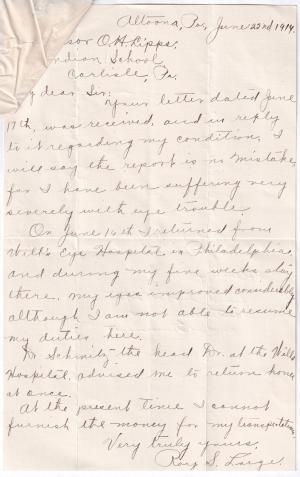 Altoona, Pa., June 22nd 1914.
sor O. H. Lipps,
ndian School,
Carlisle, Pa.
y dear Sir:
Your letter dated June
17th, was received, and in reply
to it regarding my condition, I
will say the report is no mistake,
for I have been suffering very
severely with eye trouble
On June 16th I returned from
Will's Eye Hospital in Philadelphia,
and during my five weeks stay
there, my eyes improved considerably
although I am not able to resume
my duties here.
Dr. Schnitz the head Dr. at the Wills
Hospital, advised me to return home
at once.
At the present time I cannot
furnish the money for my transportation.
Very truly yours,
Roy S. Large.